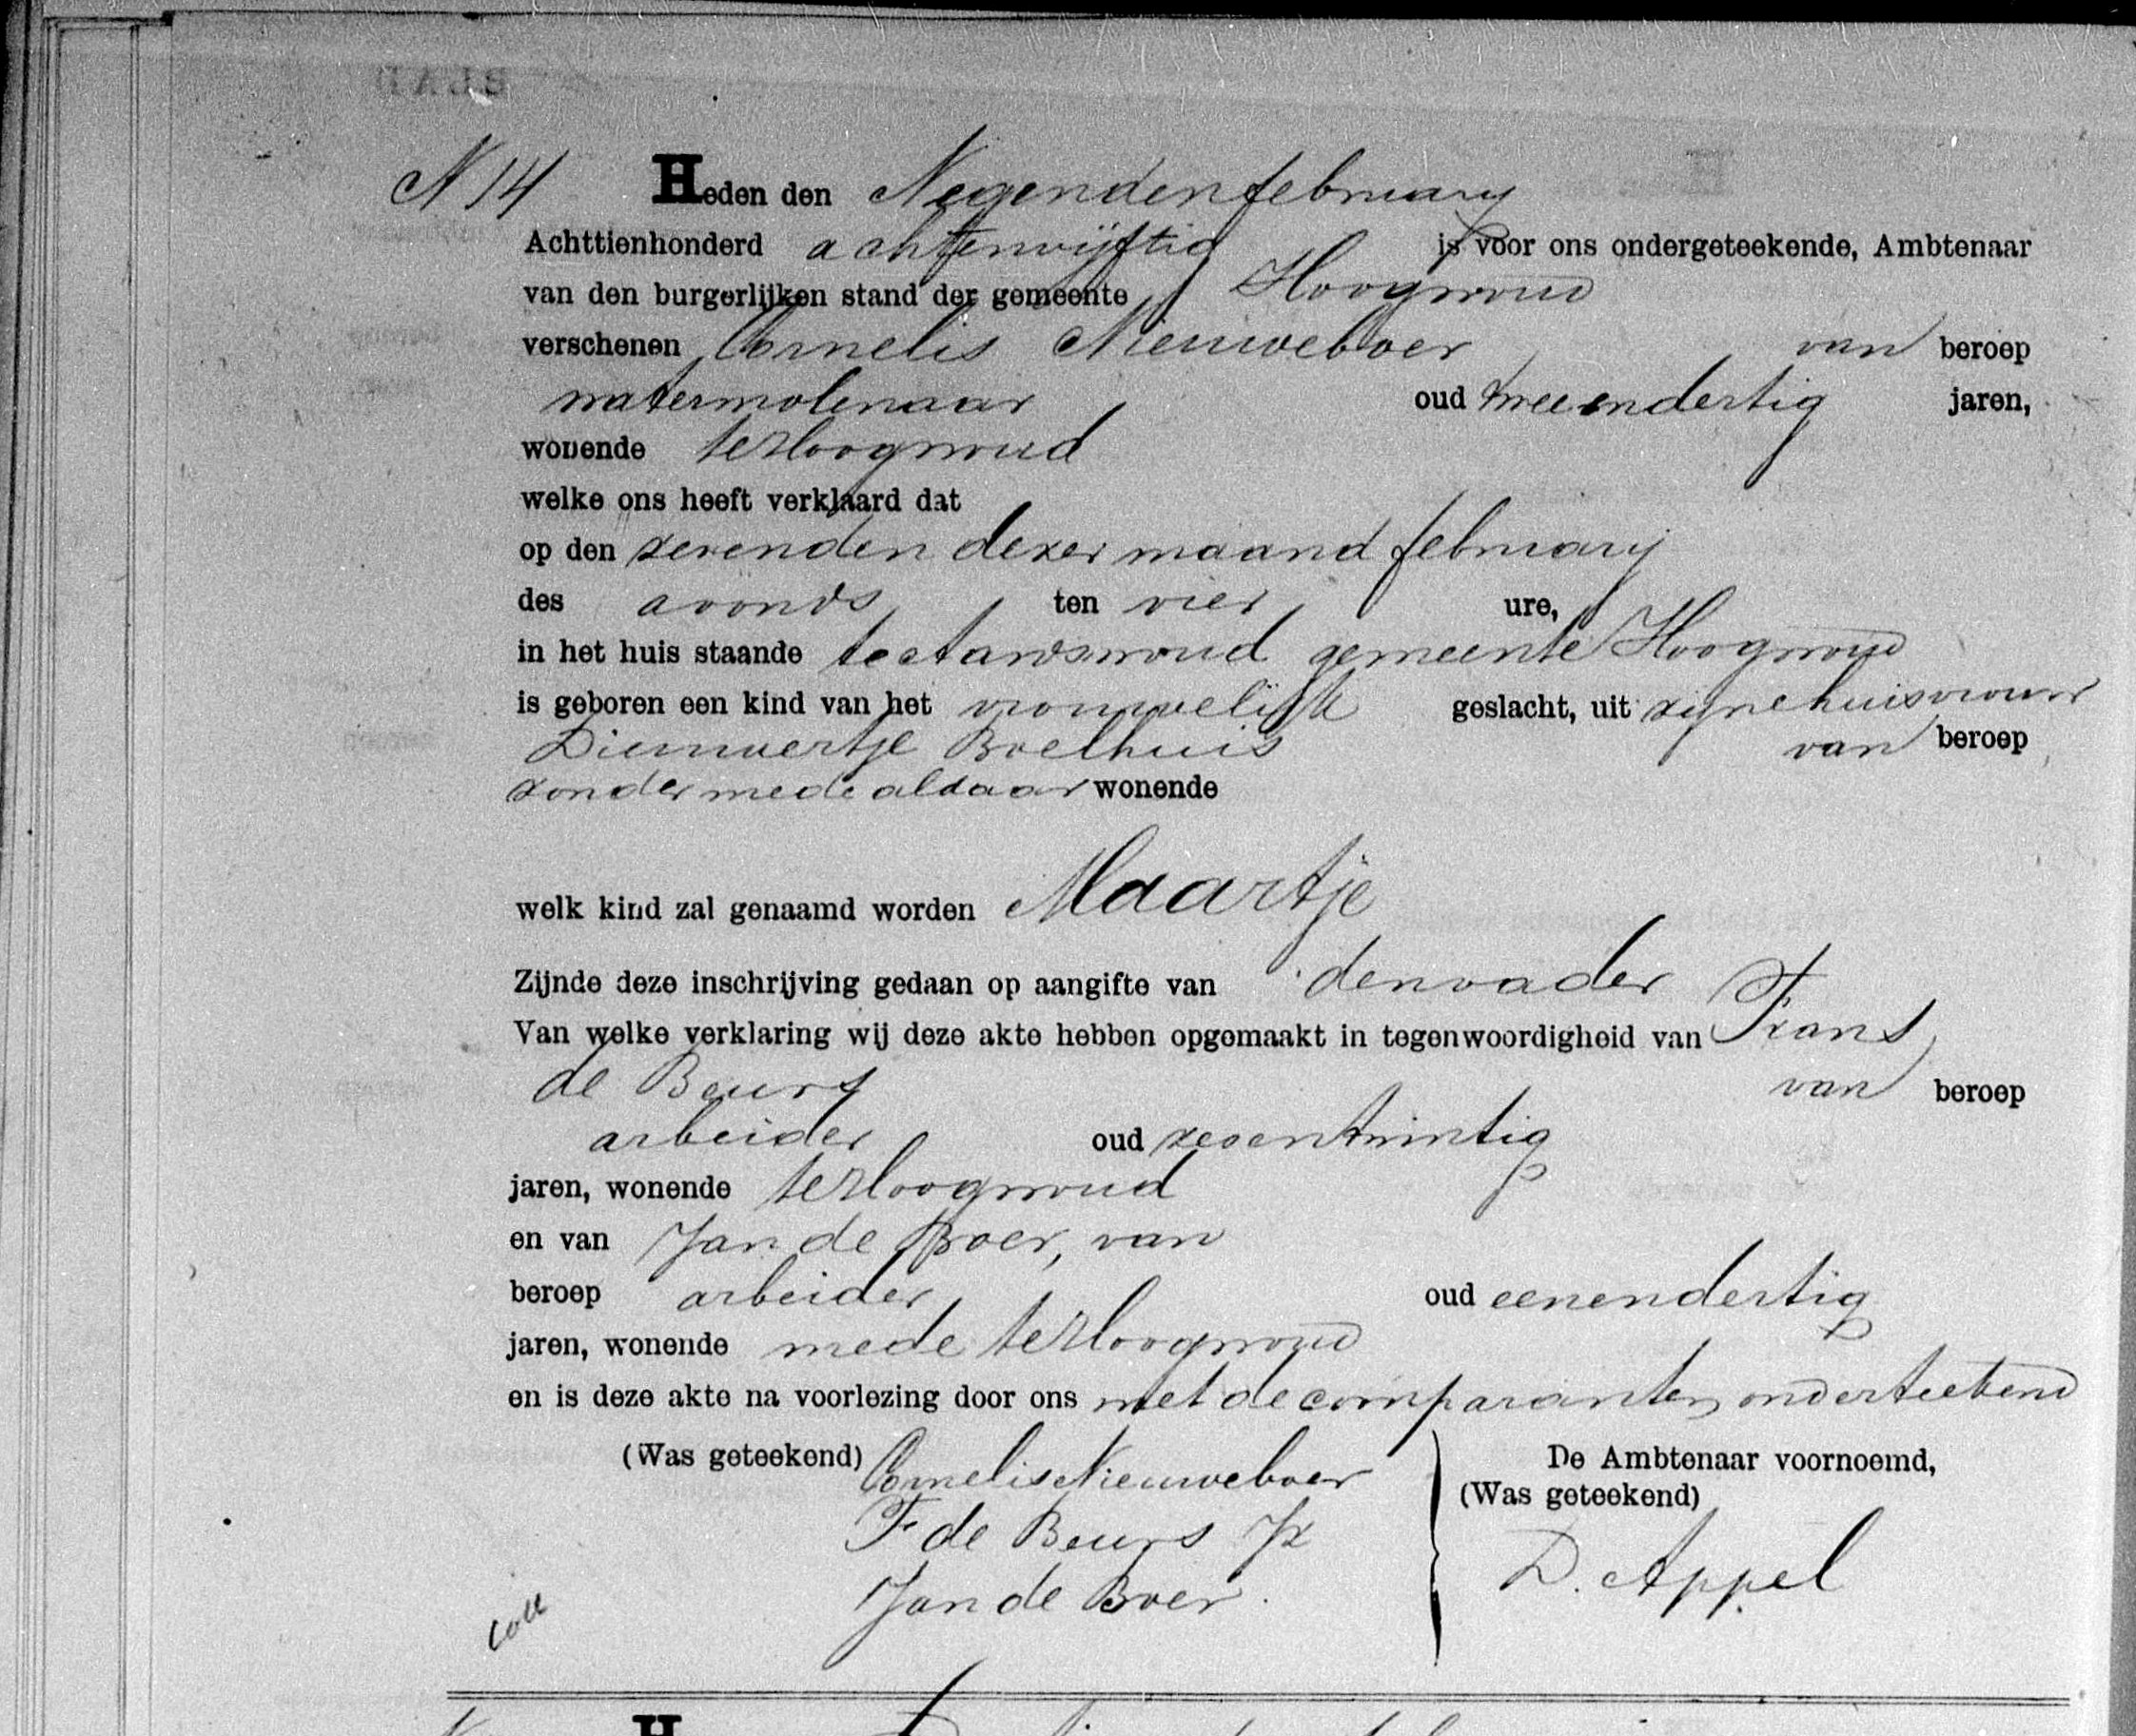 N 14 Heden den Negenden february
Achttienhonderd achtenvijftig is voor ons ondergeteekende, Ambtenaar
van den burgerlijken stand der gemeente Hoogwoud
verschenen Cornelis Nieuweboer van beroep
watermolenaar oud tweeendertig jaren,
wonende te Hoogwoud
welke ons heeft verklaard dat
op den zevenden dezer maand february
des avonds ten vier ure,
in het huis staande te Aartswoud gemeente Hoogwoud
is geboren een kind van het vrouwelijk geslacht, uit zijne huisvrouw
Dieuwertje Boelhuis van beroep
zonder mede aldaar wonende
welk kind zal genaamd worden Maartje
Zijnde deze inschrijving gedaan op aangifte van den vader
Van welke verklaring wij deze akte hebben opgemaakt in tegenwoordigheid van Frans
de Beurs van beroep
arbeider oud zesentwintig
jaren, wonende te Hoogwoud
en van Jan de Boer, van
beroep arbeider, oud eenendertig
jaren, wonende mede te Hoogwoud
en is deze akte na voorlezing door ons met de comparanten onderteekend
(Was geteekend) Cornelis Nieuweboer
F de Beurs Jz
Jan de Boer.
De Ambtenaar voornoemd,
(Was geteekend)
D. Appel
Coll